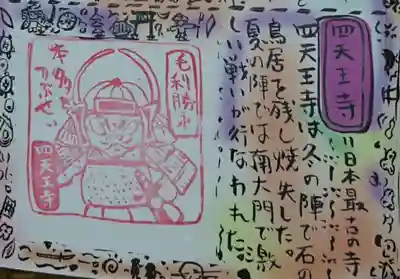 四天王寺
日本最古の寺
四天王寺は冬の陣で石の
鳥居を残し焼失した。
夏の陣では南大門で激
しい戦いが行なわれた。
毛利勝永
四天王寺